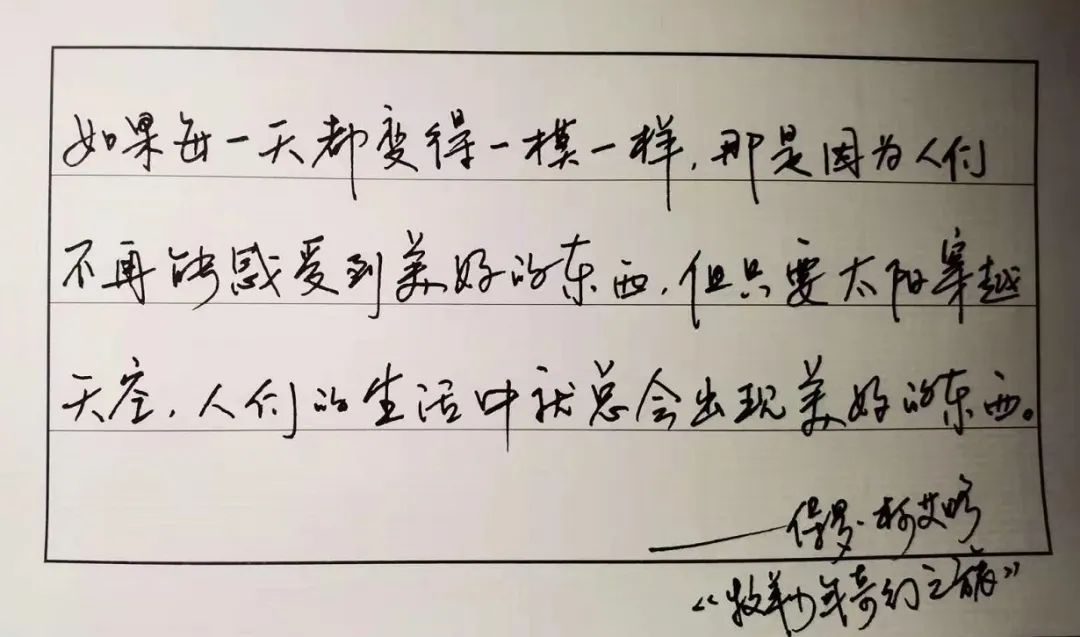 如果每一天都变得一模一样，那是因为人们
不再能感受到美好的东西，但只要太阳穿越
天空，人们的生活中就总会出现美好的东西。
——保罗·柯艾略
《牧羊少年奇幻之旅》